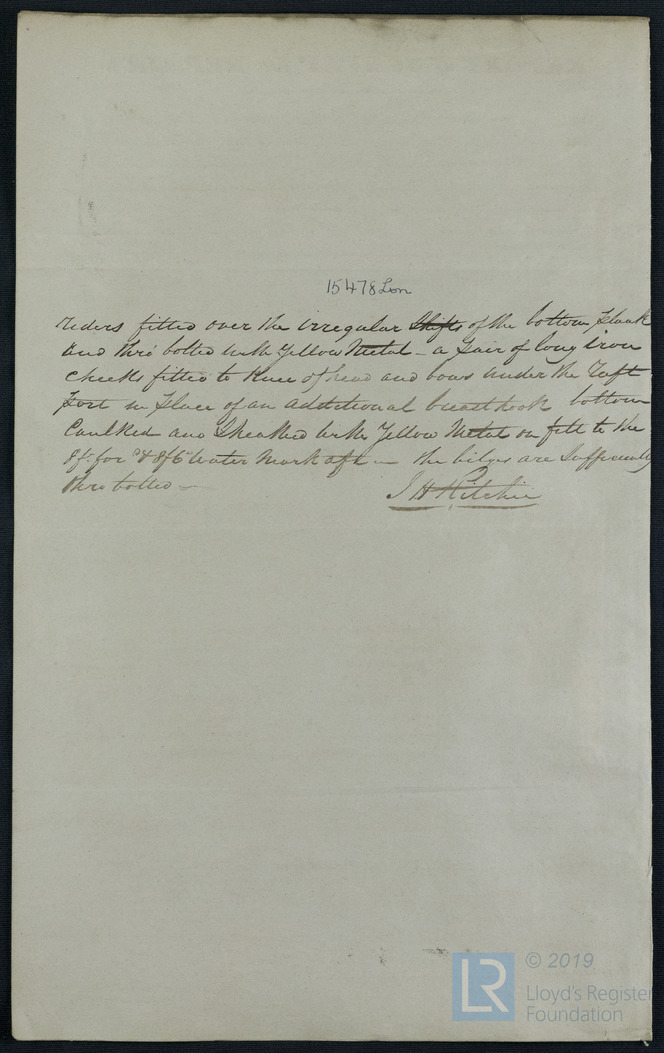 15478 Lon
riders fitted over the irregular Shifts of the bottom plank
and thro' bolted with Yellow Metal – a pair of long iron
cheeks fitted to Knee of head and bows under the Raft
port in place of an additional breasthook bottom
Caulked and Sheathed with Yellow Metal on felt to the
8 ft. for'd & 8f6 water mark aft – the bilges are Sufficiently
thro' bolted –
J H Ritchie
© 2019
LR
Lloyd's Register
Foundation